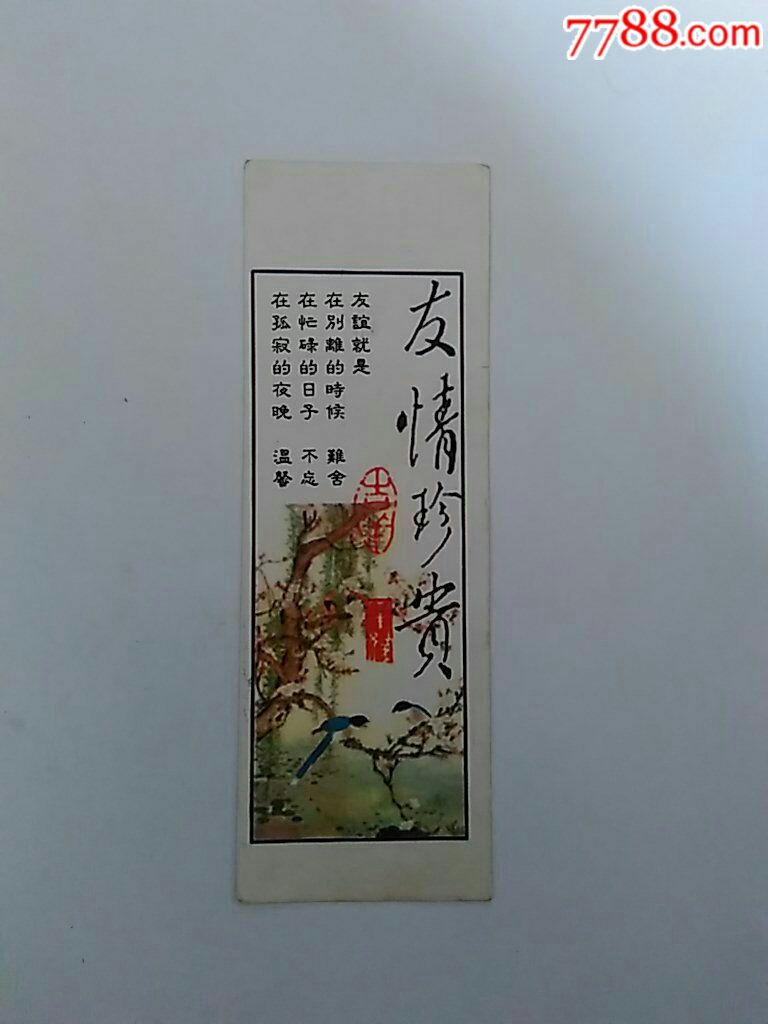 7788.com
友情珍貴
友誼就是
在別離的時候 難舍
在忙碌的日子 不忘
在孤寂的夜晚 溫馨